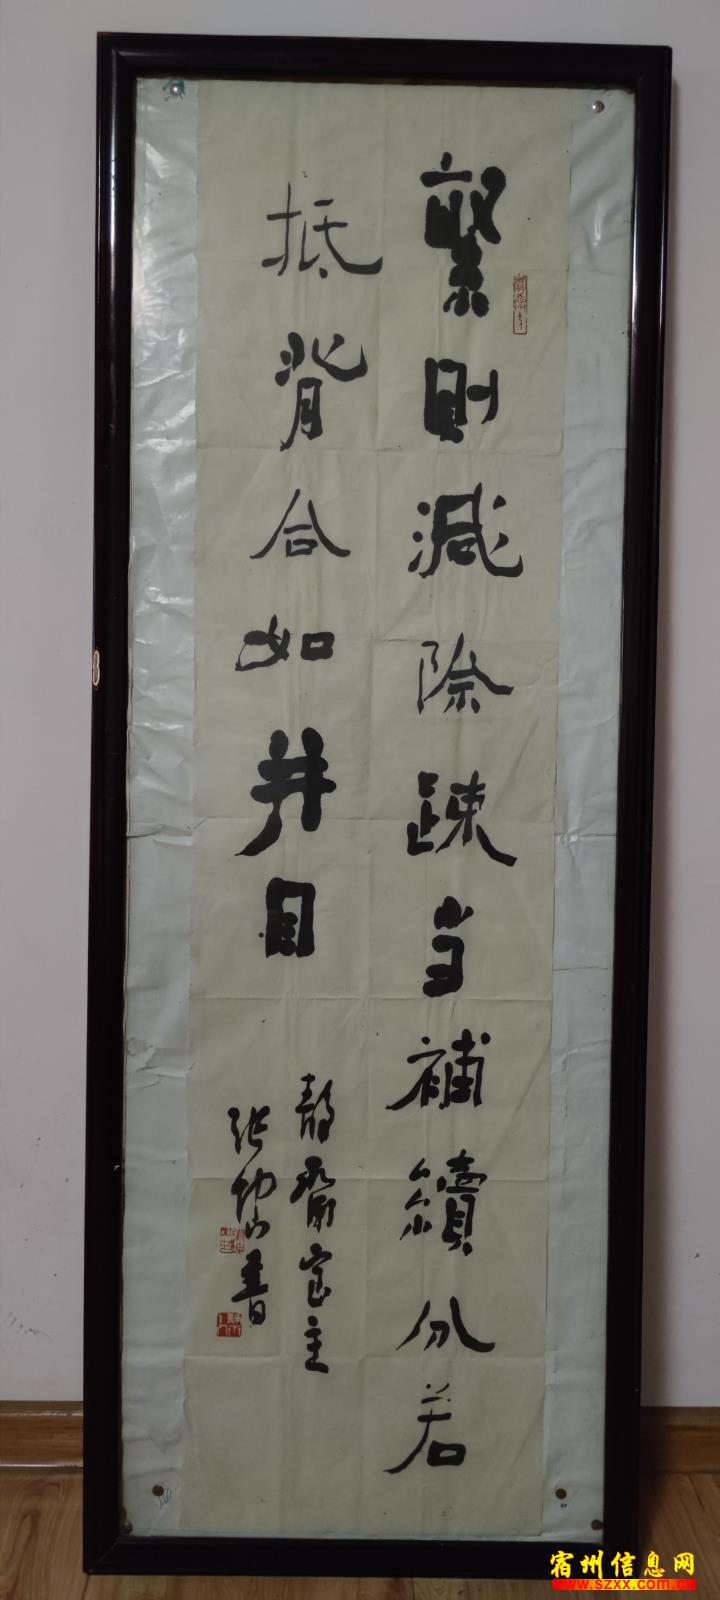 繁則減除疎當補續分若
抵背合如並目
靜齋室主
張仲山書
宿州信息网
www.szxx.com.cn